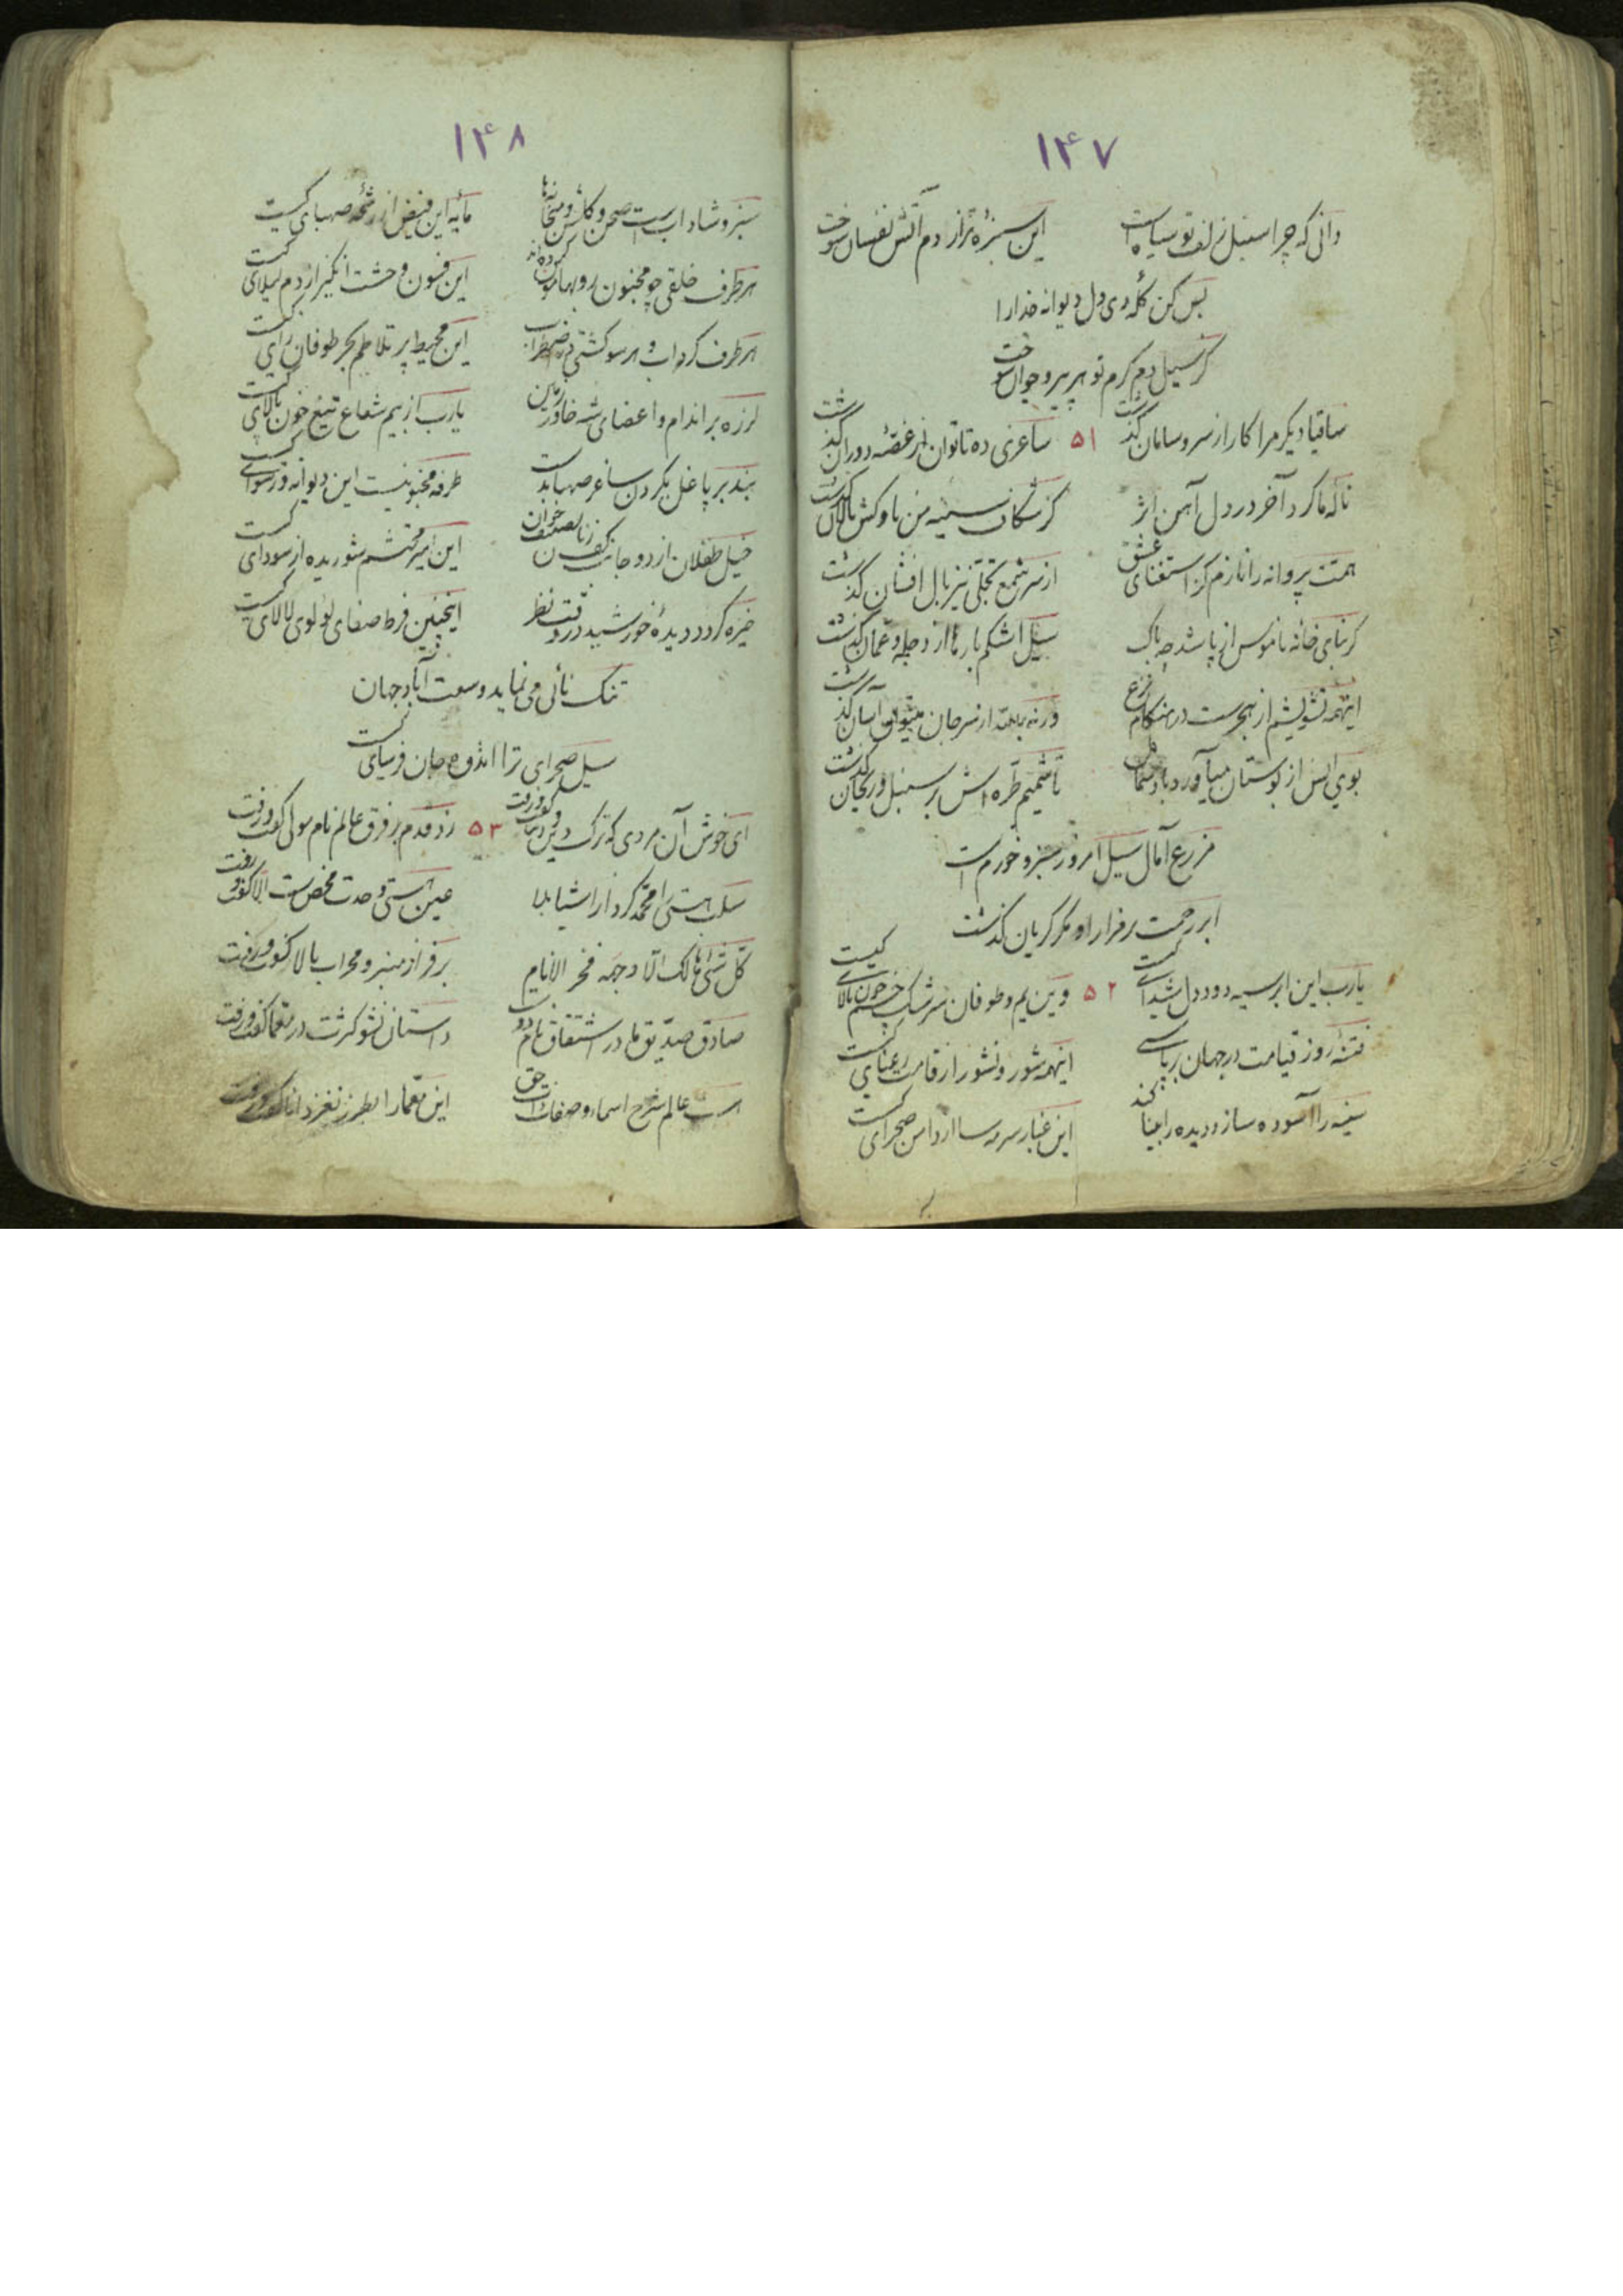 ۱۴۷
دانی که چرا سنبل زلف تو سیاه است این سبزه تر از دم آتش نفسان سوخت
بس کن گله ی دل دیوانه خدارا
کز سیل دم گرم تو هر پیر و جوان سوخت
ساقیا دیگر مرا کار از سر و سامان گذشت ۵۱ ساغری ده تا توان از غصّه دوران گذشت
ناله ما کرد آخر در دل آهن اثر کز شکاف سینه من ناوکش نالان گذشت
همت پروانه را نازم کز استغنای عشق از سر شمع تجلّی نیز بال افشان گذشت
گر بنای خانه ناموس از پا شد چه باک سیل اشکم بارها از دجله و عمّان گذشت
اینهمه تشویشم از هجرست در هنگام نزع ورنه بالله از سر جان میتوان آسان گذشت
بوی انس از بوستان میآورد باد شمال تا شمیم طرّه اش بر سنبل و ریحان گذشت
مزرع آمال سیل امروز سبز و خورم است
ابر رحمت بر فراز او مگر گریان گذشت
یارب این ابر سیه دود دل شیدای کیست ۵۲ وین یم و طوفان سرشک چشم خون پالای کیست
فتنه روز قیامت در جهان برپاستی اینهمه شور و نشور از قامت رعنای کیست
سینه را آسوده سازد دیده را بینا کند این غبار سرمه سا از دامن صحرای کیست
۱۴۸
سبز و شاداب است صحن و گلشن و میخانه ها مایه این فیض از رشحه صهبای کیست
هر طرف خلقی چو مجنون رو بهامون کرده اند این فسون وحشت انگیز از دم لیلای کیست
هر طرف گرداب و هر سو کشتی در اضطراب این محیط پر تلاطم بحر طوفان زای کیست
لرزه بر اندام و اعضای شه خاور زمین یارب از بیم شعاع تیغ خون پالای کیست
بند بر پا غل بگردن ساغر صهبا بدست طرفه مجنونیست این دیوانه و رسوای کیست
خیل طفلان از دو جانب کف زنان تصنیف خوان این امیر محتشم شوریده از سودای کیست
خیره گردد دیده خورشید در وقت نظر اینچنین فرط صفای لؤلوی لالای کیست
تنک نائی می نماید وسعت آباد جهان
سیل صحرای ترا اندوه جان فرسای کیست
ای خوش آن مردی که ترک دین و دنیا گفت و رفت ۵۳ زد قدم بر فرق عالم نام مولی گفت و رفت
سلب هستی را محمّد کرد از اشیا بلا عین هستی وحدت محض ست الّا گفت و رفت
کلّ شئ هالک الّا وجهه فخر الانام بر فراز منبر و محراب بالا گفت و رفت
صادق صدّیق ما در اشتقاق نام دوست داستان نشو کثرت در معمّا گفت و رفت
هست عالم شرح اسماء و صفات ذات حق این معمّا را بطرز نغز دانا گفت و رفت